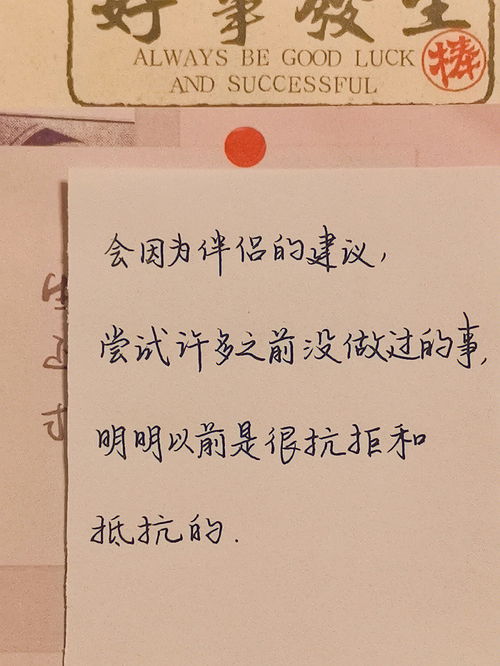 好事發生
ALWAYS BE GOOD LUCK
AND SUCCESSFUL
会因为伴侣的建议,
尝试许多之前没做过的事,
明明以前是很抗拒和
抵抗的.